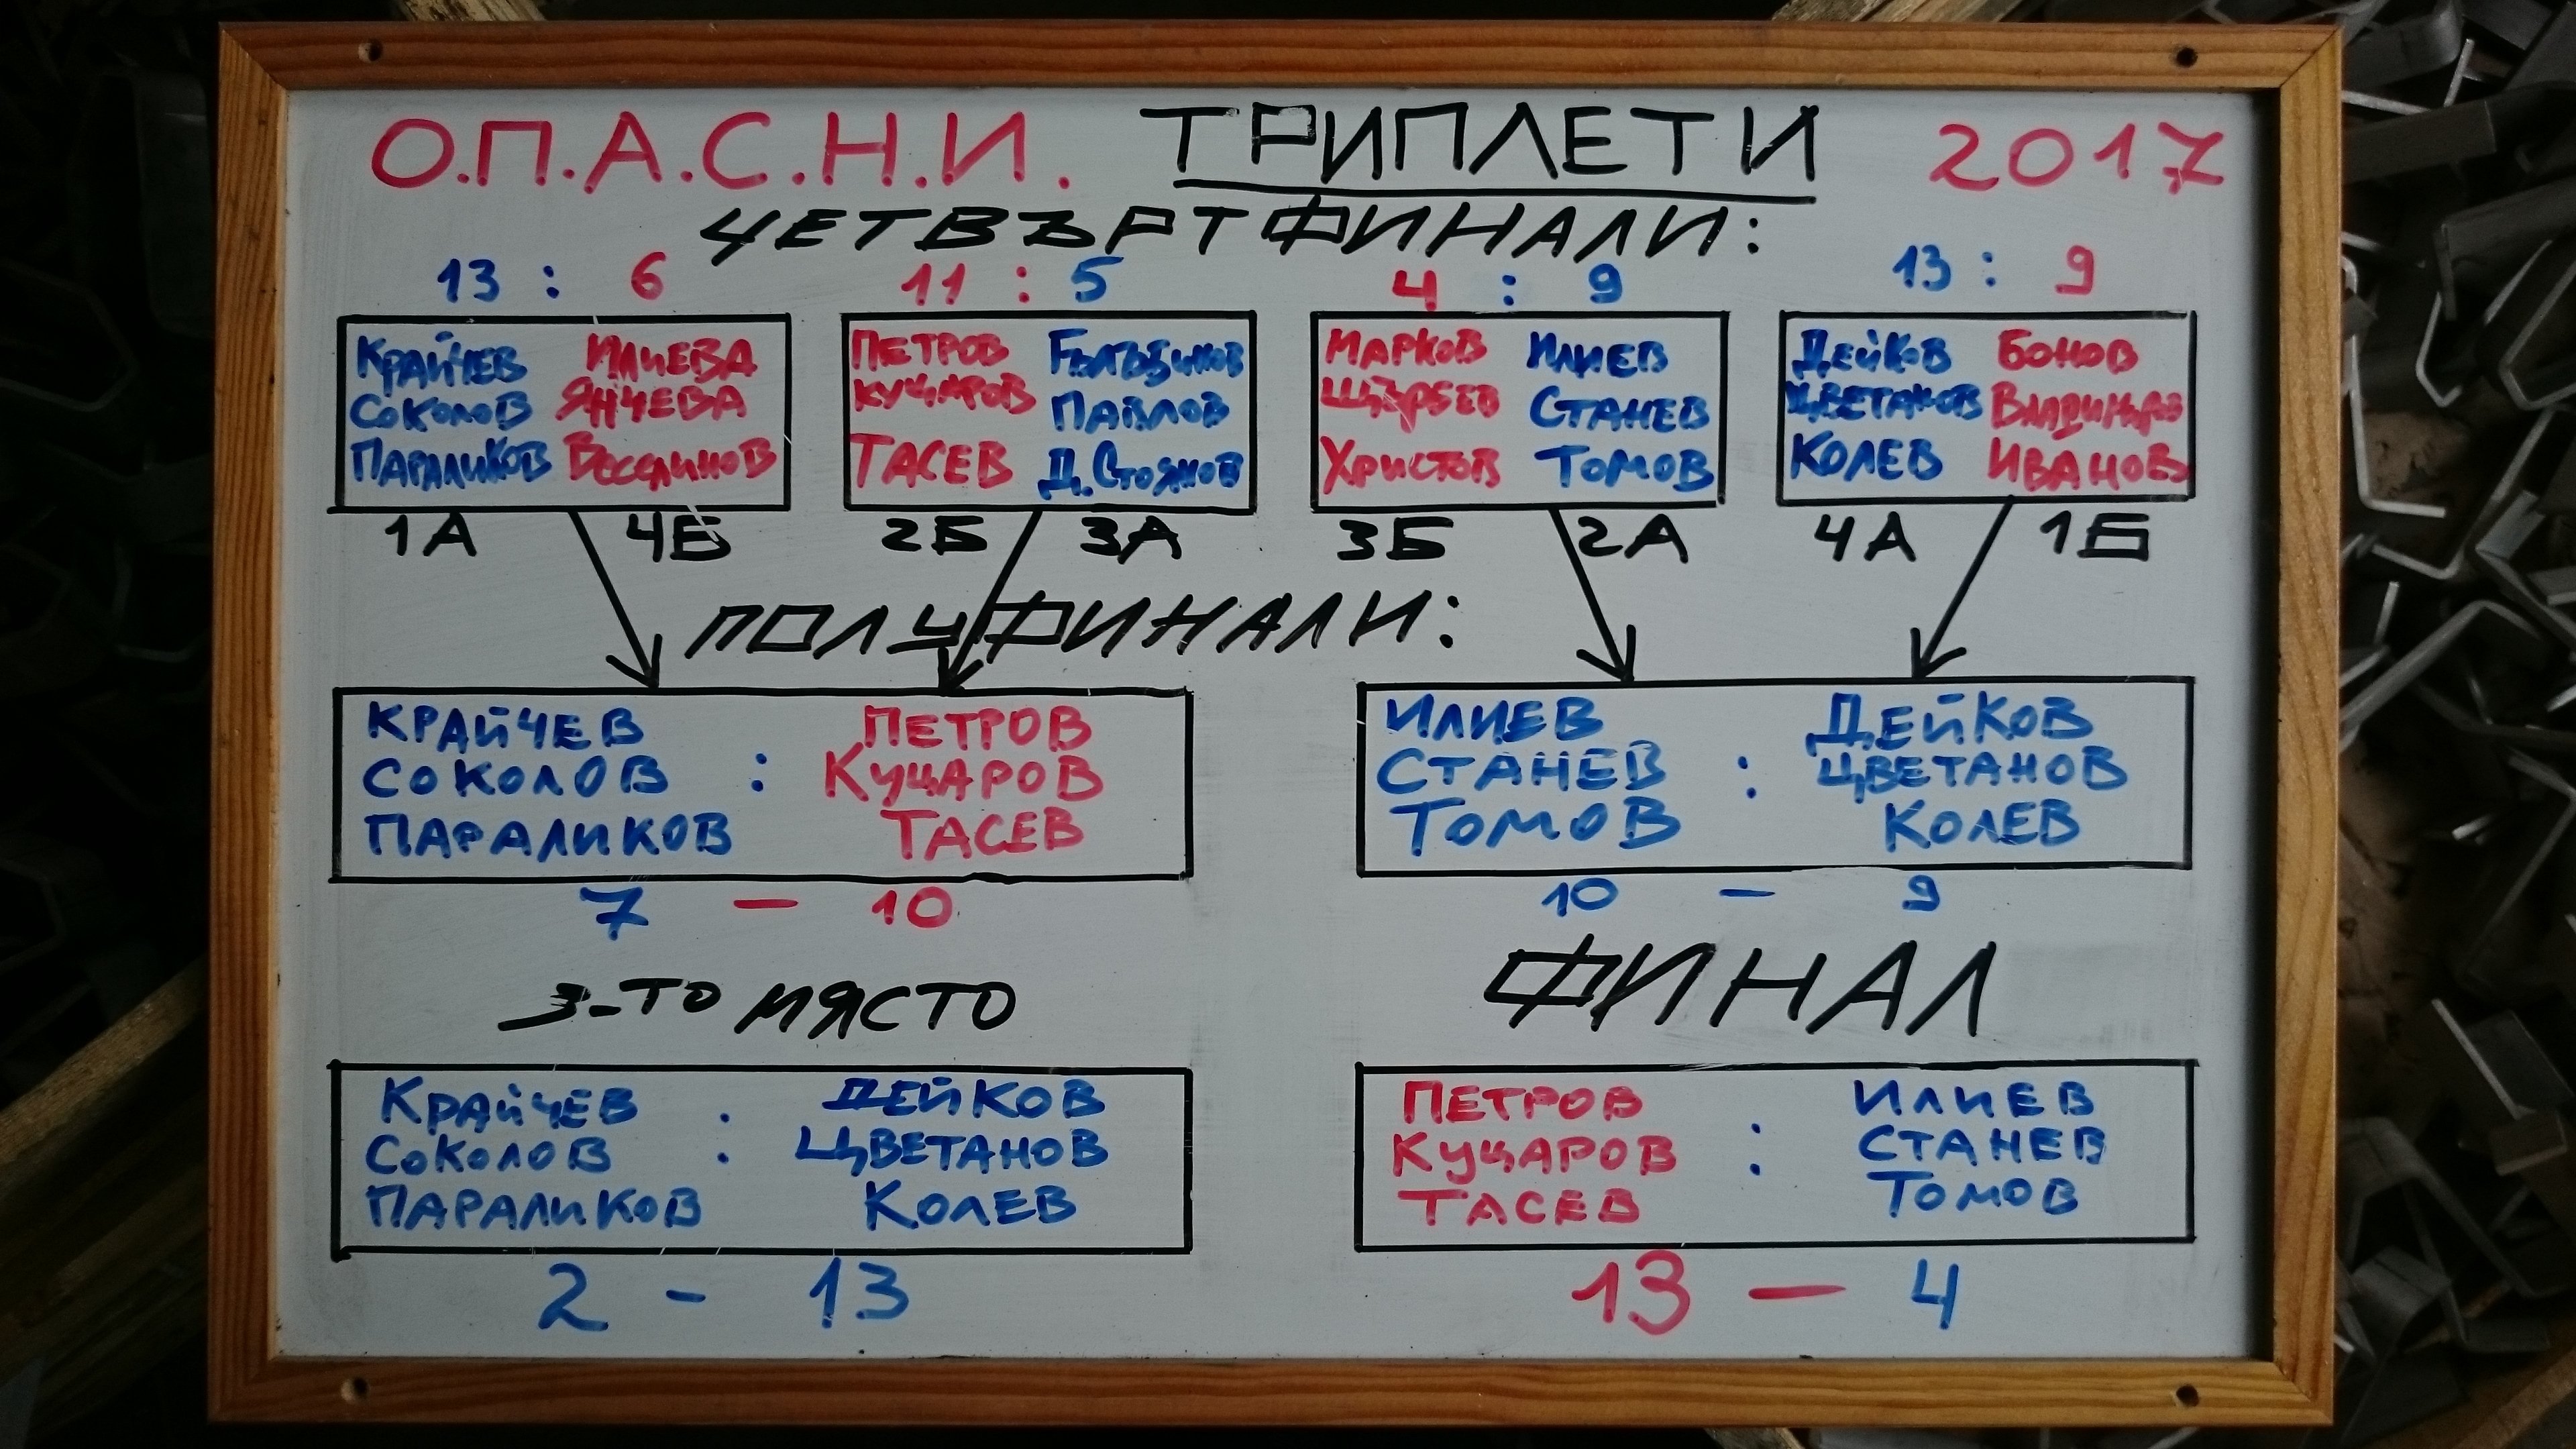 О.П.А.С.Н.И. ТРИПЛЕТИ 2017
ЧЕТВЪРТФИНАЛИ:
13 : 6
КРАЙЧЕВ ИЛИЕВА
СОКОЛОВ ЯНЧЕВА
ПАРАЛИКОВ ВЕСЕЛИНОВ
1А 4Б
11 : 5
ПЕТРОВ
КУЦАРОВ ПАВЛОВ
ТАСЕВ Д. СТОЯНОВ
2Б 3А
4 : 9
МАРКОВ ИЛИЕВ
ЩЪРБЕВ СТАНЕВ
ХРИСТОВ ТОМОВ
3Б 2А
13 : 9
ДЕЙКОВ БОНОВ
ЦВЕТАНОВ
КОЛЕВ ИВАНОВ
4А 1Б
ПОЛУФИНАЛИ:
КРАЙЧЕВ ПЕТРОВ
СОКОЛОВ : КУЦАРОВ
ПАРАЛИКОВ ТАСЕВ
7 – 10
ИЛИЕВ ДЕЙКОВ
СТАНЕВ : ЦВЕТАНОВ
ТОМОВ КОЛЕВ
10 – 9
3-ТО МЯСТО
КРАЙЧЕВ ДЕЙКОВ
СОКОЛОВ : ЦВЕТАНОВ
ПАРАЛИКОВ КОЛЕВ
2 - 13
ФИНАЛ
ПЕТРОВ ИЛИЕВ
КУЦАРОВ : СТАНЕВ
ТАСЕВ ТОМОВ
13 – 4